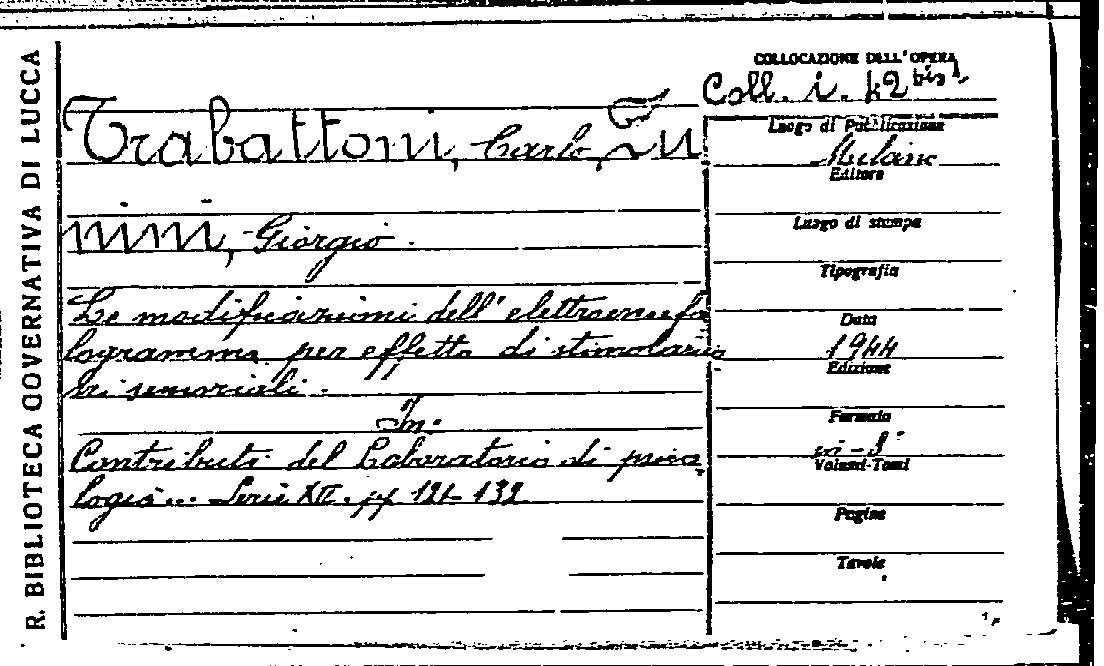 R. BIBLIOTECA GOVERNATIVA DI LUCCA
COLLOCAZIONE DELL'OPERA
Coll. i. 42 bis
Trabattoni, Carlo,
nini, Giorgio.
Le modificazioni dell'elettroencefa
logramma per effetto di stimolazio
ni sensoriali.
In:
Contributi del Laboratorio di psico
logia... Serie XII. pp 121-132
Luogo di Pubblicazione
Milano
Editore
Luogo di stampa
Tipografia
Data
1944
Edizione
Formato
in-8°
Volumi-Tomi
Pagine
Tavole